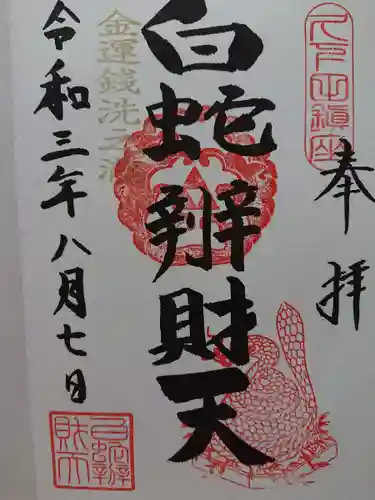 久下田鎮座
奉拝
白蛇辨財天
金運銭洗之滝
令和三年八月七日
白蛇辨
財天